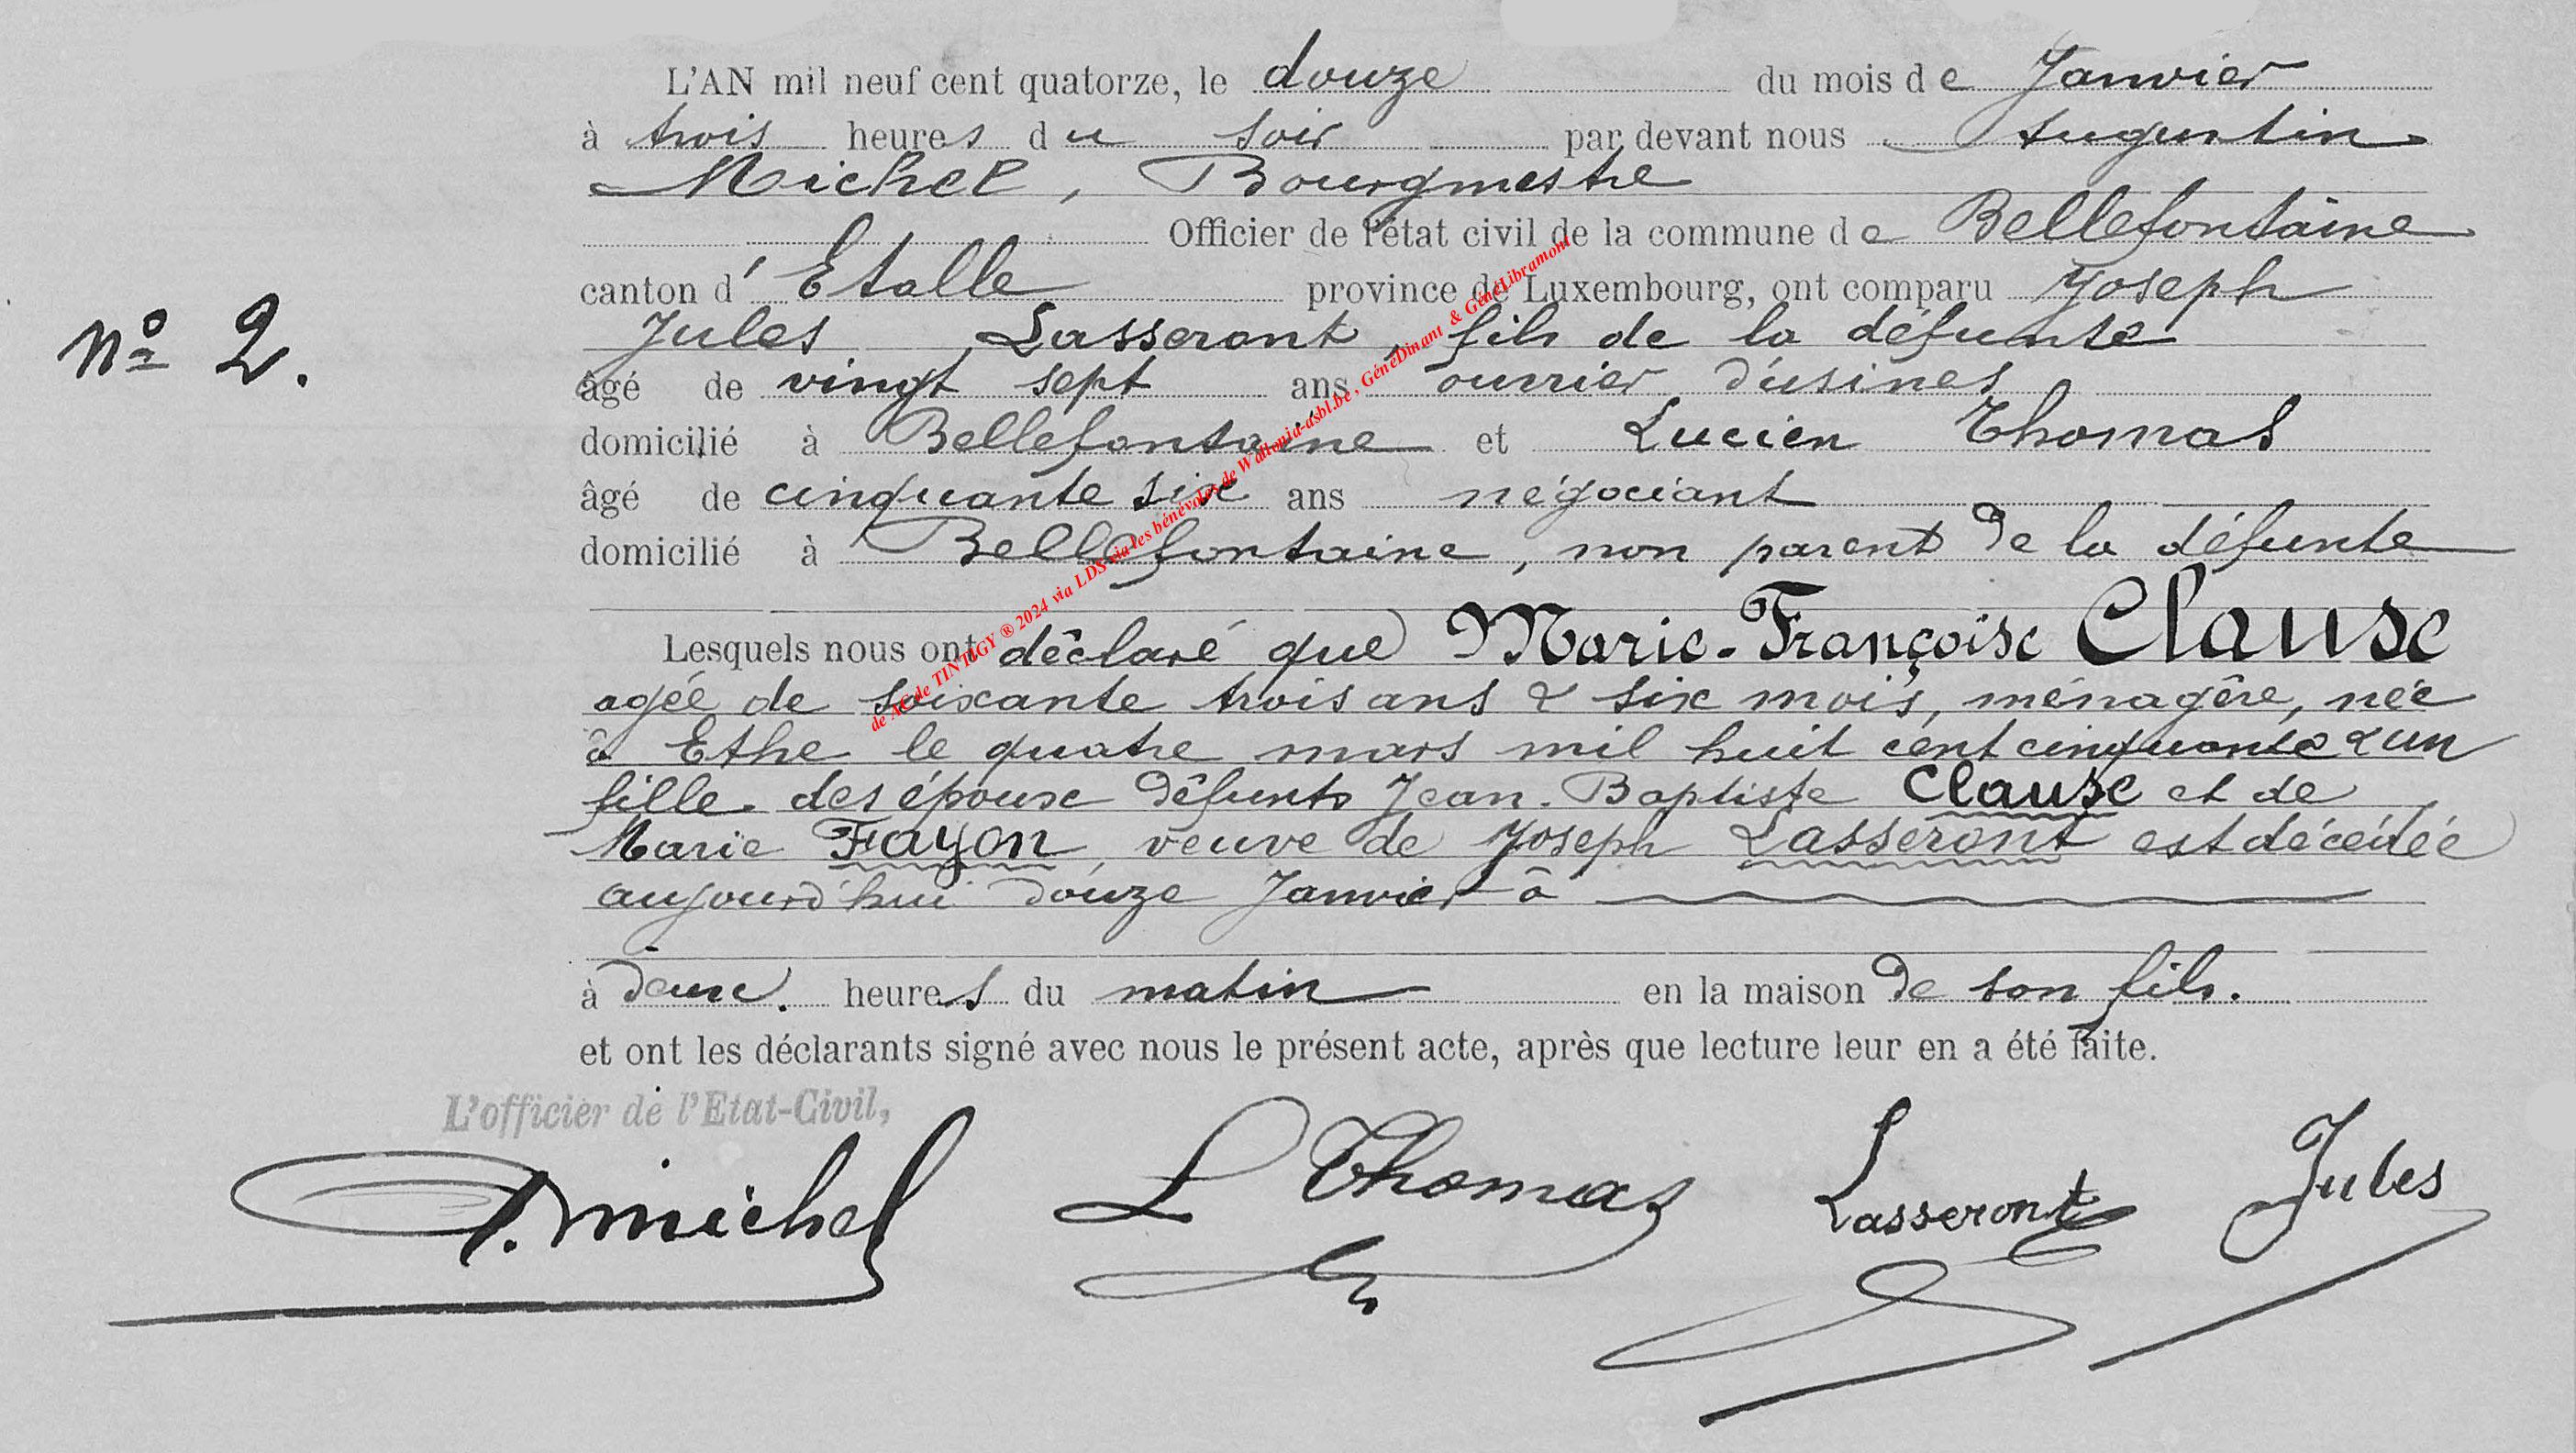 L'AN mil neuf cent quatorze, le douze du mois de Janvier
à trois heures du soir par devant nous Augustin
Michel, Bourgmestre
Officier de l'état civil de la commune de Bellefontaine
canton d'Etalle province de Luxembourg, ont comparu Joseph
Jules Lasseront, fils de la défunte
âgé de vingt sept ans ouvrier d'usines
domicilié à Bellefontaine et Lucien Thomas
âgé de cinquante six ans négociant
domicilié à Bellefontaine, non parent de la défunte
nº 2.
Lesquels nous ont déclaré que Marie-Françoise Clause
agée de soixante trois ans & six mois, ménagère, née
à Ethe le quatre mars mil huit cent cinquante & un
fille des époux défunts Jean-Baptiste Clause et de
Marie Fayon, veuve de Joseph Lasseront est décédée
aujourd'hui douze Janvier à
à deux heures du matin en la maison de son fils.
et ont les déclarants signé avec nous le présent acte, après que lecture leur en a été faite.
L'officier de l'Etat-Civil,
A. Michel L Thomas Lasseront Jules
de AC de TINTIGY ® 2024 via LDS via les bénévoles de Wallonia-asbl.be, GénéDinant & GénéLibramont